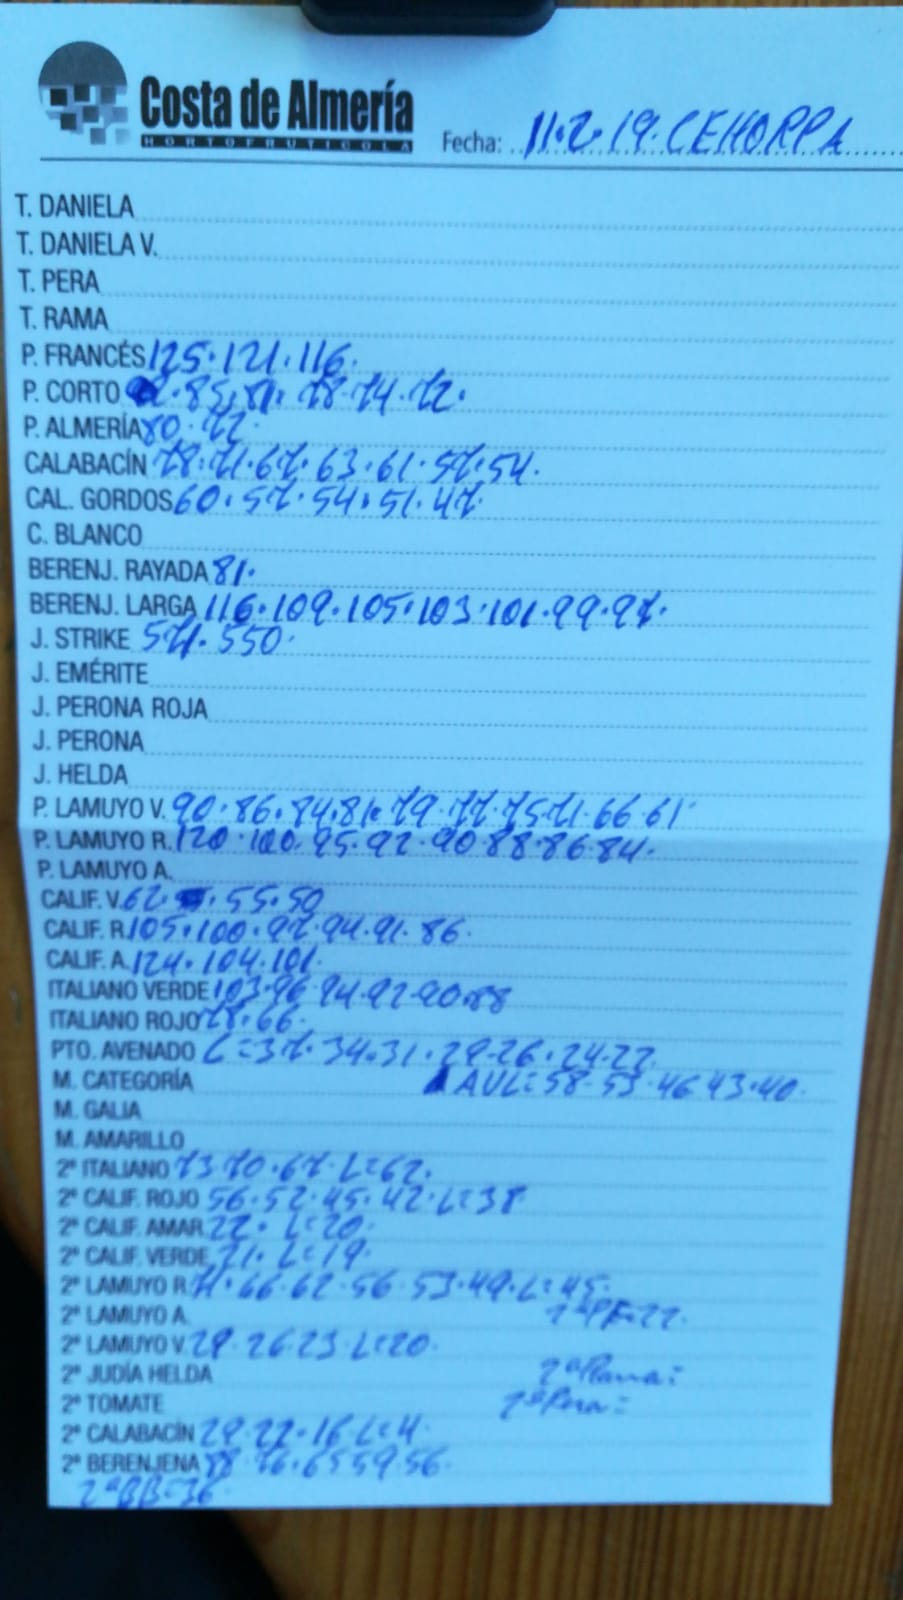 Costa de Almería
HORTOFRUTICOLA
Fecha: 11.2.19. CEHORPA
T. DANIELA
T. DANIELA V.
T. PERA
T. RAMA
P. FRANCÉS 125.121.116.
P. CORTO .85.81.78.74.72.
P. ALMERÍA 80.72.
CALABACÍN 78.71.67.63.61.57.54.
CAL. GORDOS 60.57.54.51.47.
C. BLANCO
BERENJ. RAYADA 81.
BERENJ. LARGA 116.109.105.103.101.99.97.
J. STRIKE 571.550.
J. EMÉRITE
J. PERONA ROJA
J. PERONA
J. HELDA
P. LAMUYO V. 90.86.84.81.79.77.75.71.66.61
P. LAMUYO R. 120.100.95.92.90.88.86.84.
P. LAMUYO A.
CALIF. V. 62. .55.50
CALIF. R. 105.100.97.94.91.86.
CALIF. A. 124.104.101.
ITALIANO VERDE 103.96.94.92.90.88
ITALIANO ROJO 78.66.
PTO. AVENADO L=37.34.31.29.26.24.22.
M. CATEGORÍA AVL=58.53.46.43.40.
M. GALIA
M. AMARILLO
2ª ITALIANO 73.70.67.L=62.
2ª CALIF. ROJO 56.52.45.42.L=38
2ª CALIF. AMAR. 22. L=20.
2ª CALIF. VERDE 21. L=19.
2ª LAMUYO R. 71.66.62.56.53.49.L=45.
2ª LAMUYO A. 2ªPF=22.
2ª LAMUYO V. 29.26.23.L=20.
2ª JUDÍA HELDA 2ªRama=
2ª TOMATE 2ªPera=
2ª CALABACÍN 29.22.16.L=4.
2ª BERENJENA 88.76.65.59.56.
2ªBB=36.